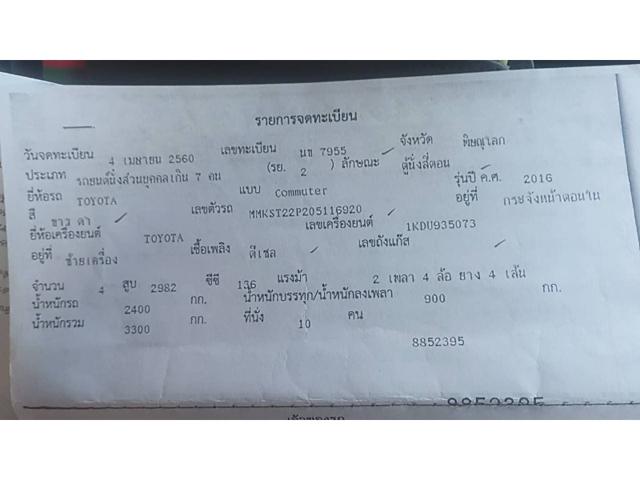 รายการจดทะเบียน
วันจดทะเบียน 4 เมษายน 2560 เลขทะเบียน นข 7955 จังหวัด พิษณุโลก
ประเภท รถยนต์นั่งส่วนบุคคลเกิน 7 คน (รย. 2 ) ลักษณะ ตู้นั่งสี่ตอน
ยี่ห้อรถ TOYOTA แบบ Commuter รุ่นปี ค.ศ. 2016
สี ขาว ดำ เลขตัวรถ MMKST22P205116920 อยู่ที่ กระจังหน้าตอนใน
ยี่ห้อเครื่องยนต์ TOYOTA เลขเครื่องยนต์ 1KDU935073
อยู่ที่ ซ้ายเครื่อง เชื้อเพลิง ดีเซล เลขถังแก๊ส
จำนวน 4 สูบ 2982 ซีซี 136 แรงม้า 2 เพลา 4 ล้อ ยาง 4 เส้น
น้ำหนักรถ 2400 กก. น้ำหนักบรรทุก/น้ำหนักลงเพลา 900 กก.
น้ำหนักรวม 3300 กก. ที่นั่ง 10 คน
8852395
8852395
เจ้าของรถ